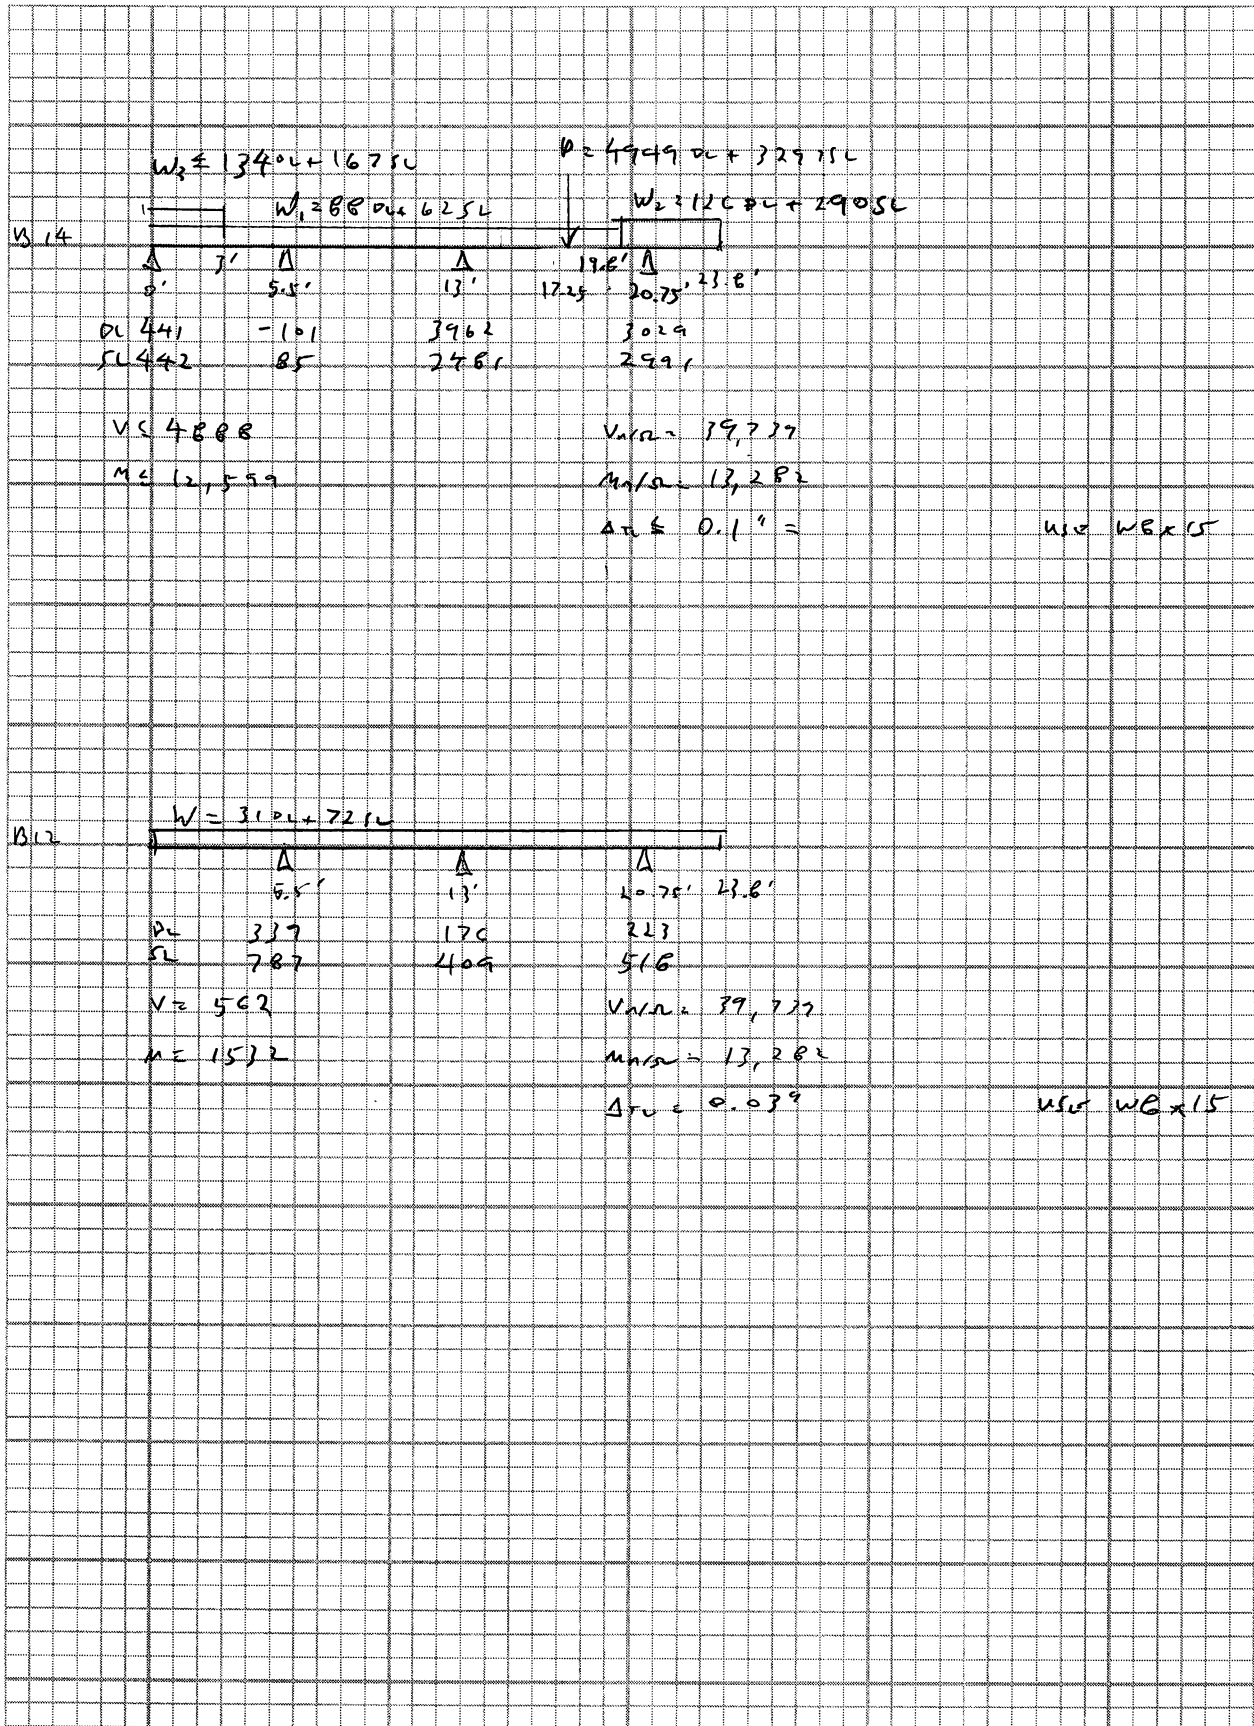 W3 = 134 DL + 167 SL
P = 4949 DL + 3297 SL
W1 = 88 DL + 62 SL
W2 = 126 DL + 290 SL
B14
0' 3' 5.5' 13' 17.25 19.8' 20.75' 23.8'
DL 441 -101 3962 3029
SL 442 85 2481 2991
V = 4888 Vn/Ω = 39,739
M = 12,599 Mn/Ω = 13,282
ΔTL = 0.1" = USE W8x15
W = 31 DL + 72 SL
B12
5.5' 13' 20.75' 23.8'
DL 339 176 223
SL 787 409 518
V = 562 Vn/Ω = 39,739
M = 1532 Mn/Ω = 13,282
ΔTL = 0.03" USE W8x15